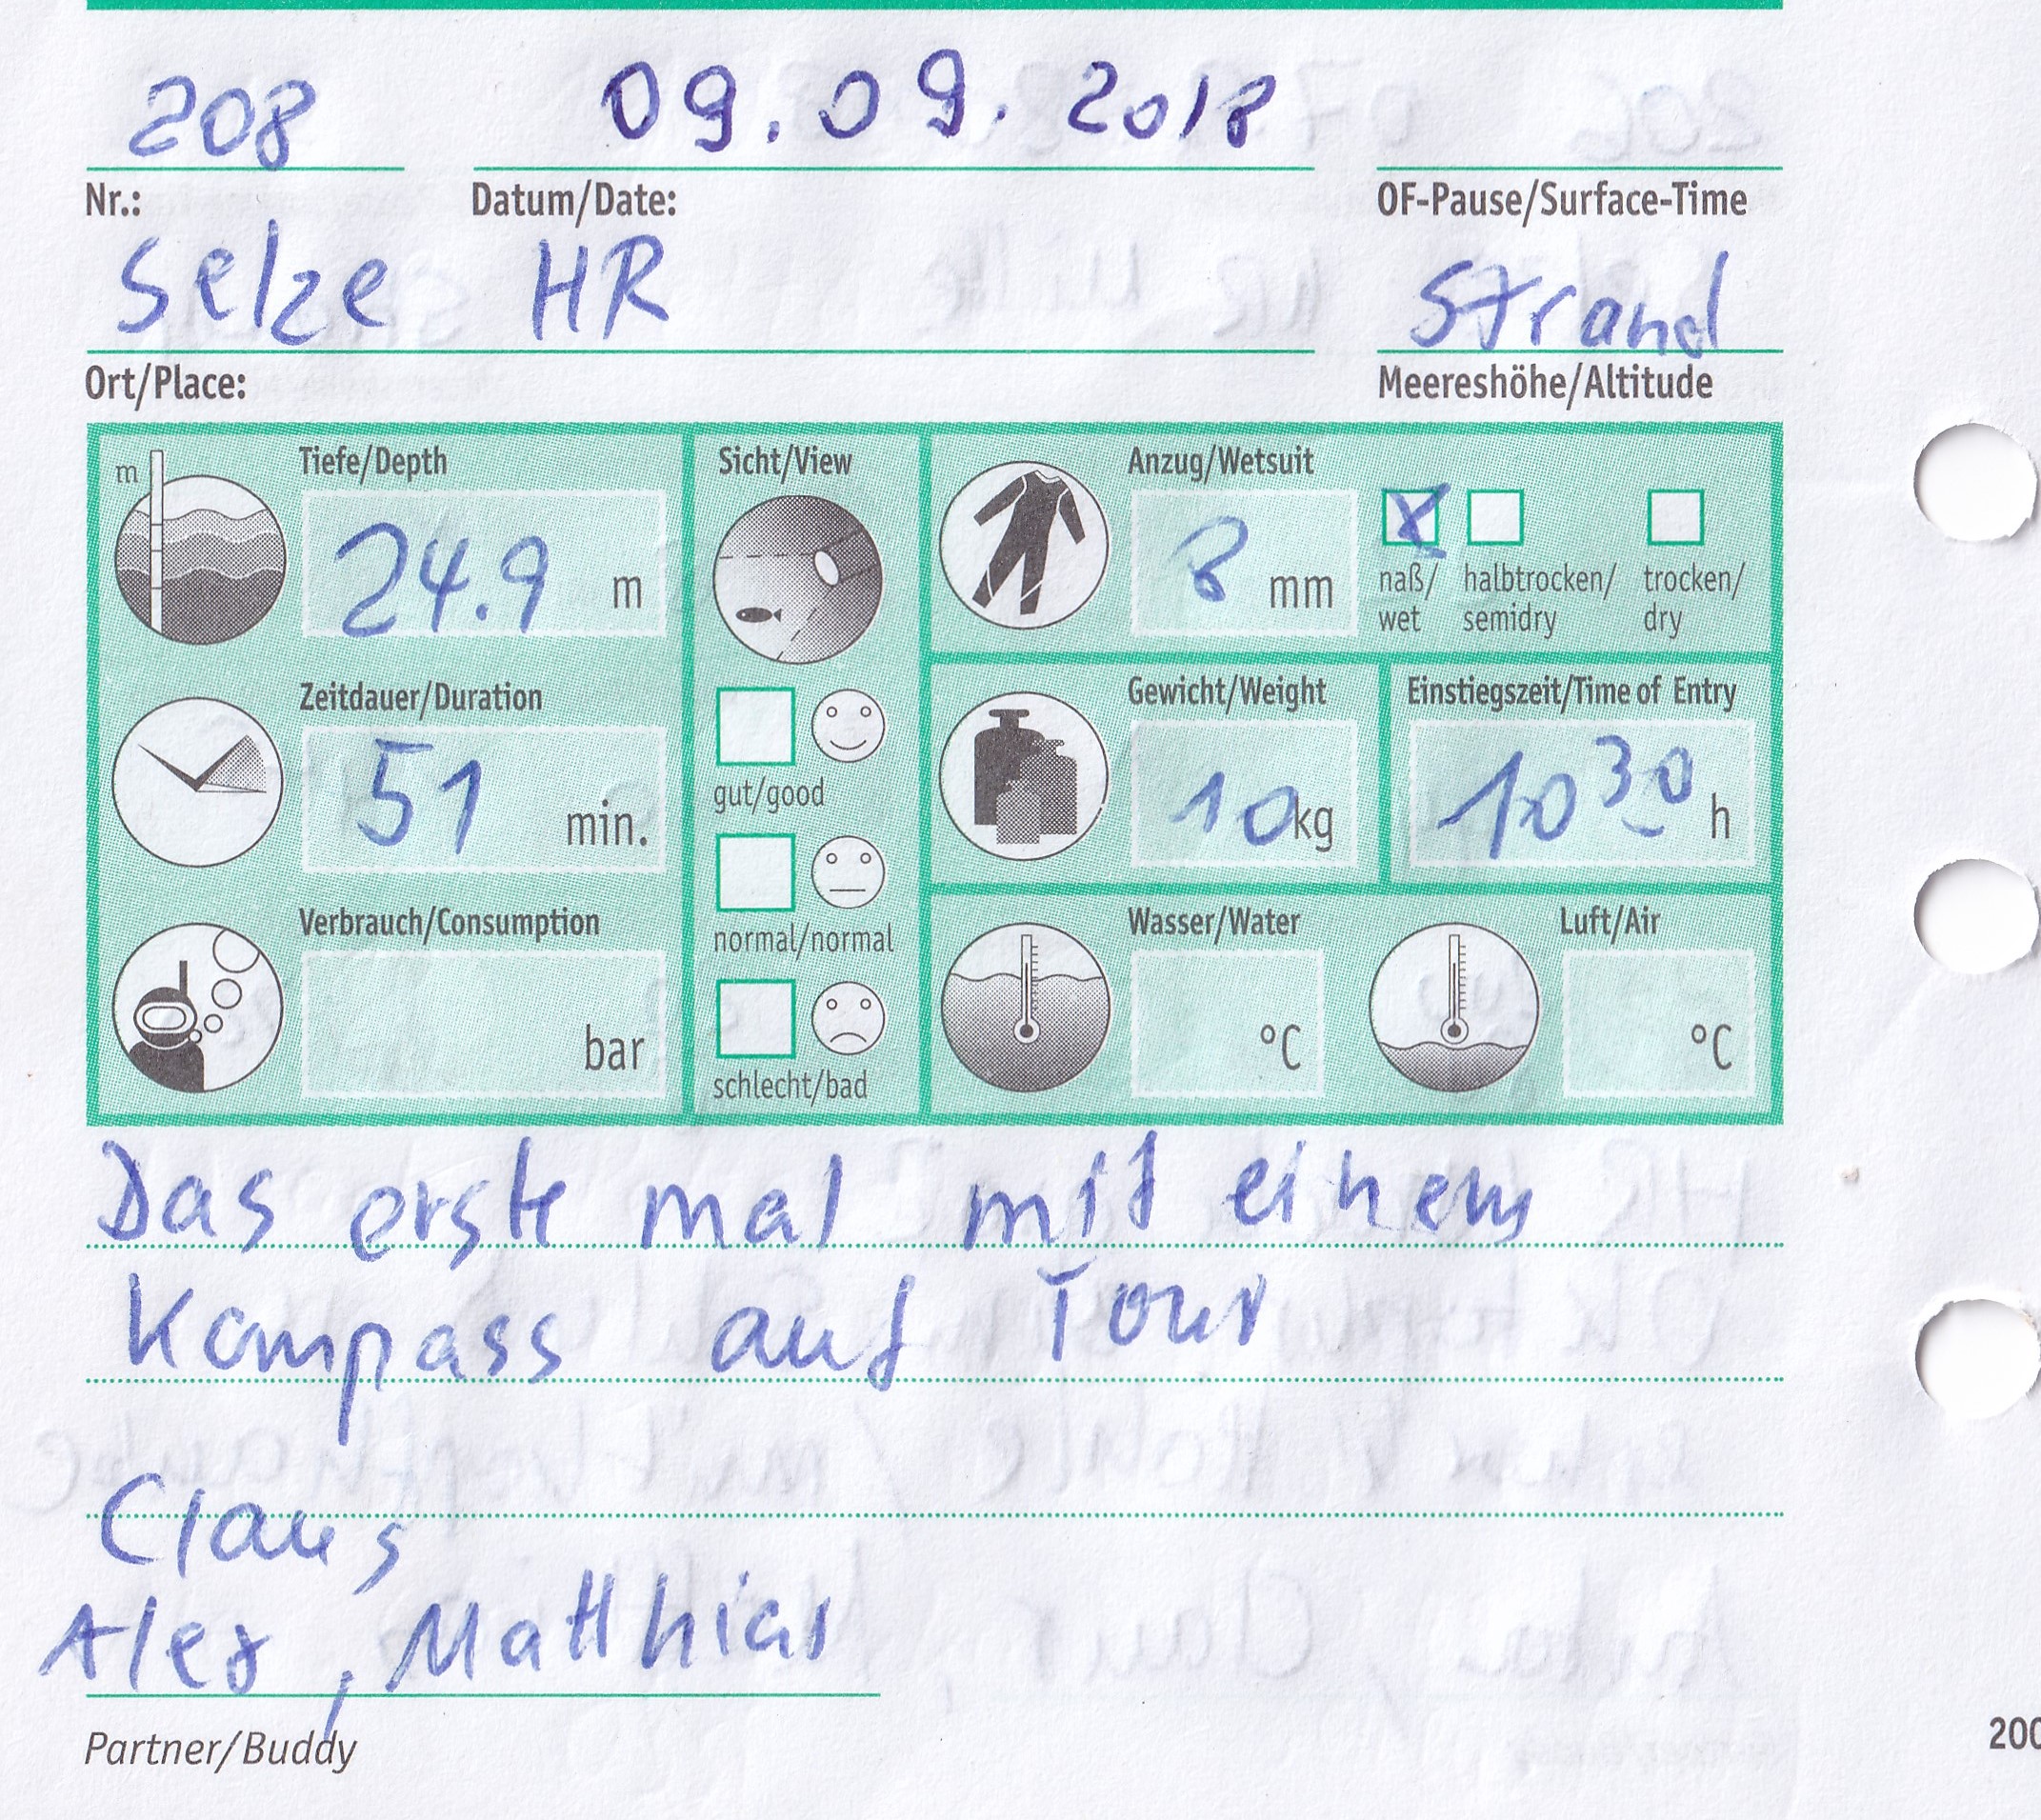 208 09.09.2018
Nr.: Datum/Date: OF-Pause/Surface-Time
Selze HR Strand
Ort/Place: Meereshöhe/Altitude
m Tiefe/Depth Sicht/View Anzug/Wetsuit
24.9 m 8 mm
naß/ halbtrocken/ trocken/
wet semidry dry
Zeitdauer/Duration Gewicht/Weight Einstiegszeit/Time of Entry
51 min. 10 kg 10 30 h
gut/good
Verbrauch/Consumption normal/normal Wasser/Water Luft/Air
bar °C °C
schlecht/bad
Das erste mal mit einem
Kompass auf Tour
Claus
Alex, Matthias
Partner/Buddy
200